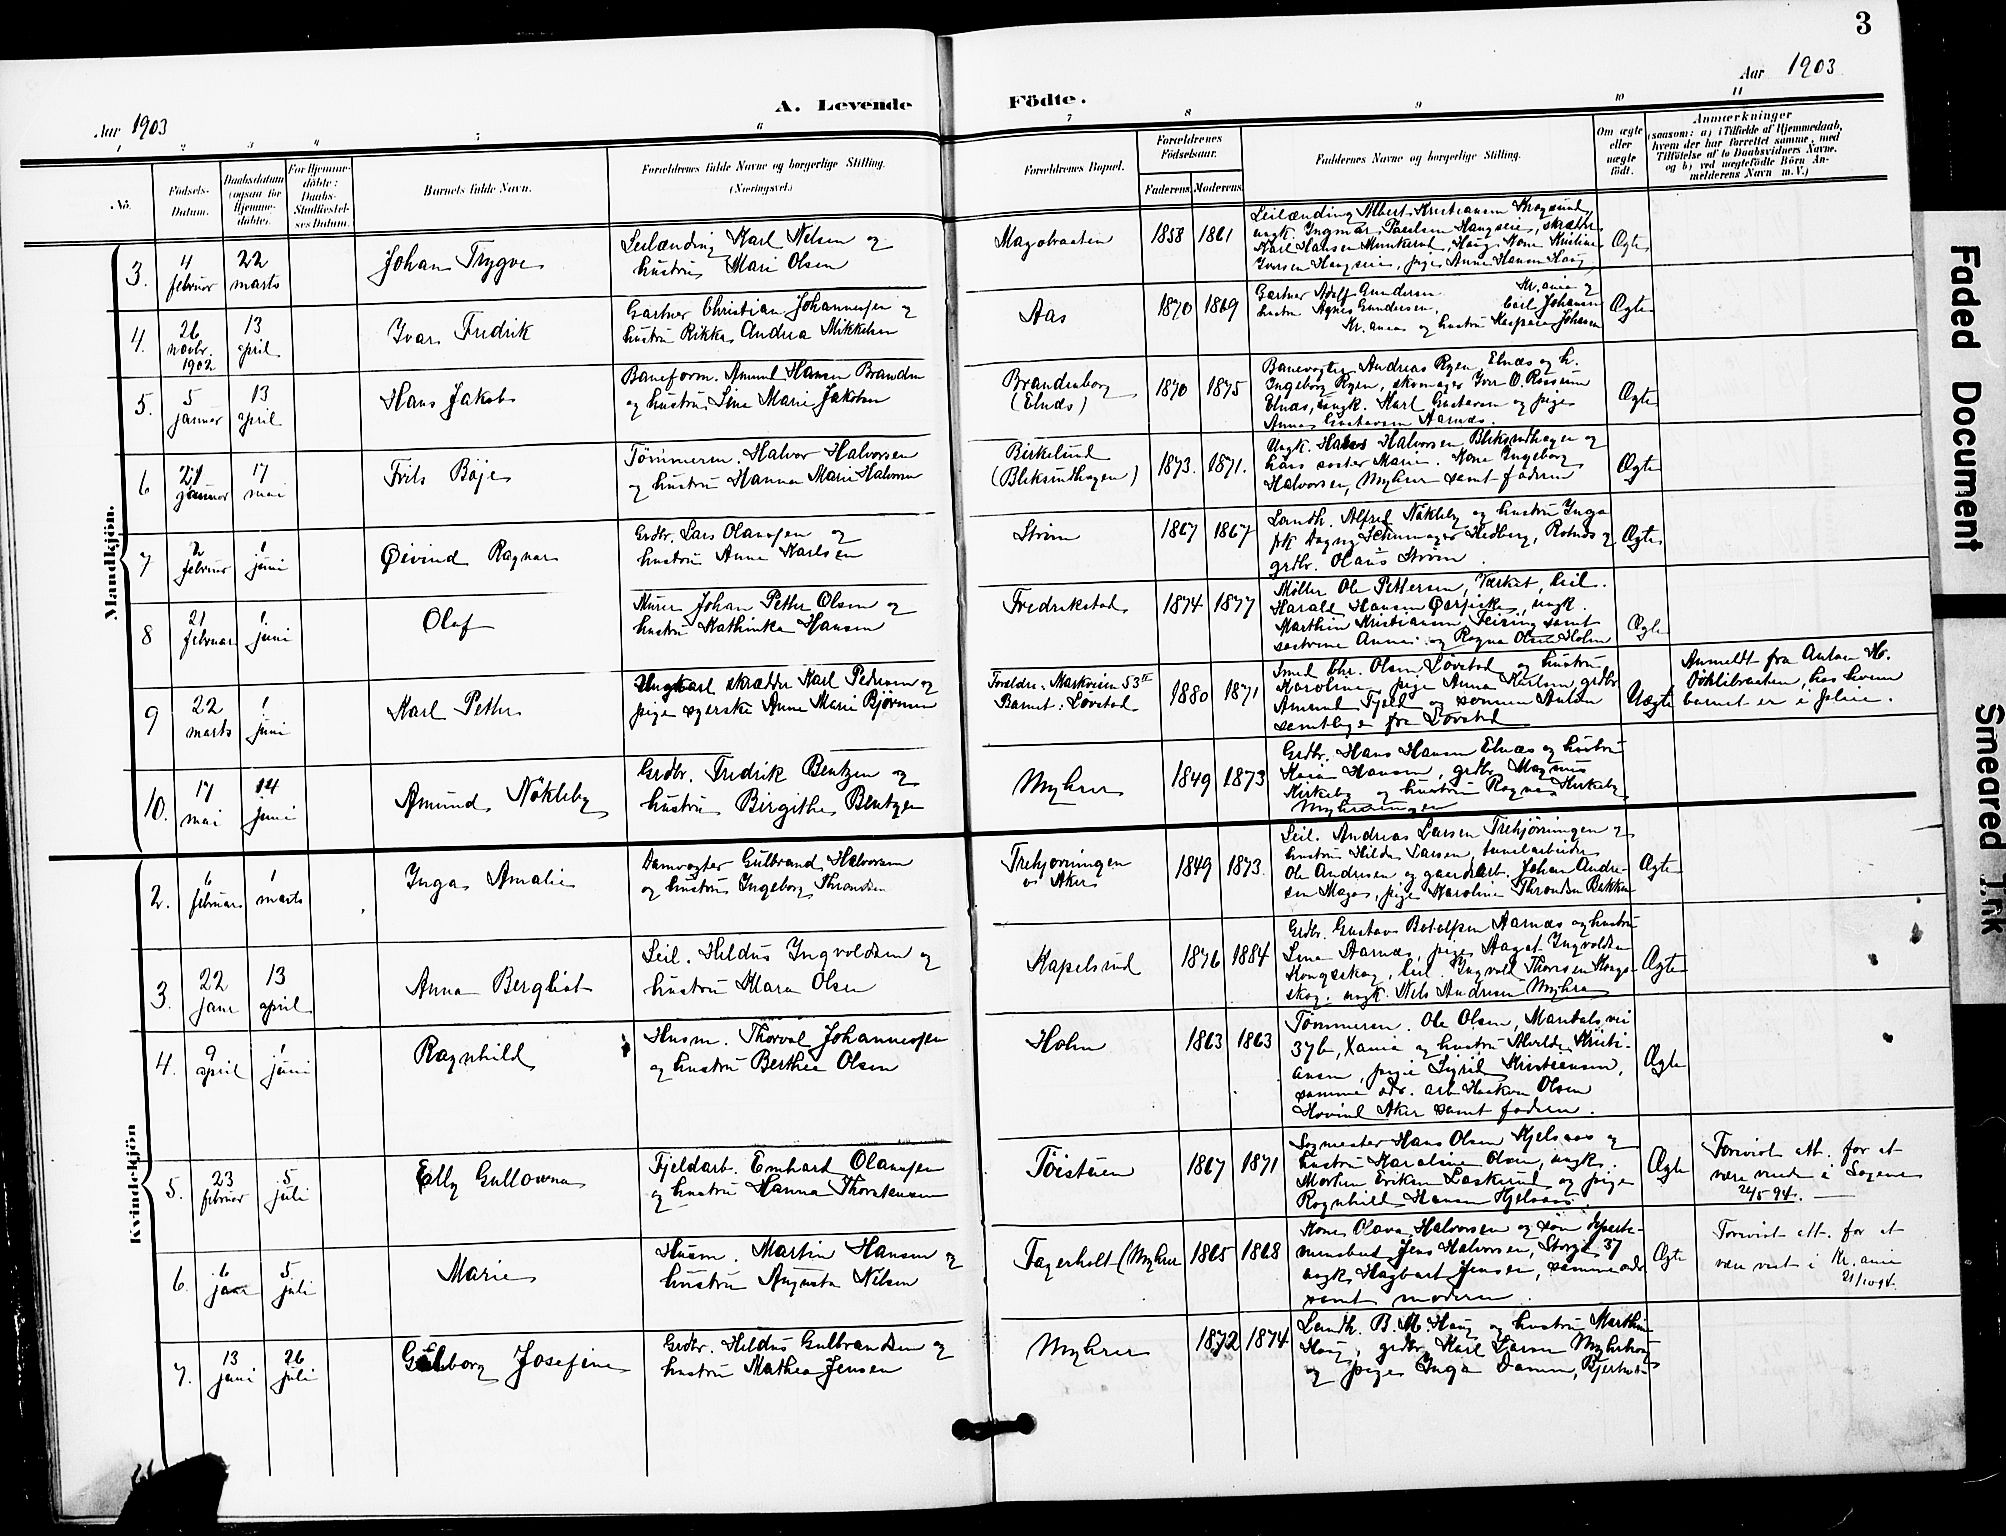 3
Aar 1903
A. Levende Födte.
Aar 1903
1 2 3 4 5 6 7 8 9 10 11
No.
Födsels-Datum.
Daabsdatum (ogsaa for Hjemmedöbte).
For Hjemmedöbte: Daabs-Stadfæstelsens Datum.
Barnets fulde Navn.
Forældrenes fulde Navne og borgerlige Stilling.
(Næringsvei.)
Forældrenes Bopæl.
Forældrenes Födselsaar.
Faderens Moderens
Faddernes Navne og borgerlige Stilling.
Om ægte eller uægte födt.
Anmærkninger
(saasom: a) i Tilfælde af Hjemmedaab,
hvem der har forrettet samme, med
Tilföielse af to Daabsvidners Navne.
og b) ved uægtefödte Börn Anmelderens Navn m. V.)
Mandkjön.
3.
4 februar
22 marts
Johan Trygve
Leilænding Karl Nilsen og
hustru Mari Olsen
Magobraaten
1858 1861
Leilænding Albert Kristiansen
ungk. Ingmar Paulsen Haugseie, skrædder
Karl Hansen Munkerud, Haug, Kone Kristine
Iversen Haugseie, pige Anna Hansen Haug
Ægte
4.
26 novbr. 1902
13 april
Ivar Fredrik
Gartner Christian Johannesen og
hustru Rikka Andrea Mikkelsen
Aas
1870 1869
Gartner Adolf Gundersen Kr.ania og
hustru Agnes Gundersen, Carl Johansen
Kr.ania og hustru Johansen
Ægte
5.
5 januar
13 april
Hans Jakob
Baneform. Amund Hansen Branden
og hustru Lina Marie Jakobsen
Brandenborg
(Elnæs)
1870 1875
Banevogter Andreas Ryen, Elnæs og h.
Ingeborg Ryen, skomager Iver O.
Elnæs, ungk. Karl Gustavsen og pige
Anna Gustavsen Aarnæs.
Ægte
6
21 januar
17 mai
Frits Böje
Tömmerm. Halvor Halvorsen
og hustru Hanna Marie Halvorsen
Birkelund
(Bleksrudhagen)
1873. 1871.
Ungk. Halvorsen Bleksrudhagen og
hans söster Marie. Kone Ingeborg
Halvorsen, Myhrer samt faderen
Ægte
7
2 februar
1 juni
Öivind Ragnar
Grdbr. Lars Olaussen og
hustru Anna Karlsen
Ström
1867 1867
Landh. Alfred Nökleby og hustru Inga
frk Dagny Schumager Hedberg, Rotnes og
grdbr. Olaus Ström.
Ægte
8
21 februar
1 juni
Olaf
Murer Johan Petter Olsen og
hustru Kathinka Hansen
Fredrikstad
1874 1877
Möller Ole Pettersen, Værket, Leil.
Harald Hansen, ungk.
Marthin Kristiansen samt
söstrene Anna og Ragna Olsen Holm
Ægte
9
22 marts
1 juni
Karl Petter
Ungkarl skrædder Karl Pedersen og
pige syerske Anna Marie Björnsen
Foreldre: Markveien 53 II
Barnet: Lövstad
1880 1871
Smed Chr. Olsen Lövstad og hustru
Karoline, pige Anna Karlsen, grdbr.
Amund Fjeld og sönnen Anton
samtlige fra Lövstad
Uægte
Anmeldt fra Anton
hos hvem
barnet er i pleie.
10.
17 mai
14 juni
Amund Nökleby
Grdbr. Fredrik Bentzen og
hustru Birgitha Bentzen
Myhrer
1849 1873
Grdbr. Hans Hansen Elnæs og hustru
Hansen, grdbr. Magnus
Kirkeby og hustru Ragna Kirkeby
Kvindekjön
2.
6 februar
1 marts
Inga Amalie
Damvogter Gulbrand Halvorsen
og hustru Ingeborg Throndsen
Trehjörningen
v/ Aker
1849 1873.
Leil. Andreas Larsen Trehjörningen og
hustru Hilda Larsen,
Ole Andersen og gaardsarb. Johan Andersen Magos, pige Karoline Throndsen Bakken
Ægte
3.
22 januar
13 april
Anna Bergliot
Leil. Hildus Ingvoldsen og
hustru Maren Olsen
Kapelsrud
1876 1884
Grdbr. Gustav Botolfsen Aarnæs og hustru
Lina Aarnæs, pige Aagot Ingvoldsen
Kongsskog, leil. Ingvald Thoresen Kongsskog. ungk. Nils Andresen Myhra
Ægte
4.
9 april
1 juni
Ragnhild
Husm. Thorvald Johannesen
og hustru Berthea Olsen
Holm
1863 1863
Tömmerm. Ole Olsen, Maridalsvei
37b, Xania og hustru Alvilde Kristiansen, pige Sigrid Kristiansen,
samme adr. arb. Haakon Olsen
Hovind Aker samt faderen.
Ægte
5.
23 februar
5 juli
Elly Gullowna
Fjeldarb. Emhard Olaussen
og hustru Hanna Thorstensen
Töistuen
1867 1871
Sagmester Hans Olsen Kjelsaas og
hustru Karoline Olsen, ungk.
Morten Eriksen Laskerud og pige
Ragnhild Hansen Kjelsaas.
Ægte
Forevist att. for at
være viet i Sogene
26/5 94.
6.
6 januar
5 juli
Marie
Husm. Martin Hansen og
hustru Augusta Nilsen
Fagerholt (Myhrer
1865 1868
Kone Olava Halvorsen og sön
Jens Halvorsen, Storgt. 37
ungk. Hagbart Jensen, samme adr.
samt moderen.
Ægte
Forevist att. for at
være viet i Kr.ania
21/10 94.
7.
13 juni
26 juli
Gulborg Josefine
Grdbr. Hildus Gulbrandsen og
hustru Mathea Jensen
Myhrer
1872 1874
Landh. B. M. Haug og hustru Marthin
Haug, grdbr. Karl Larsen Myhrhaug
og pige Inga Damm, Bjerkelu-
Faded Document
Smeared Ink